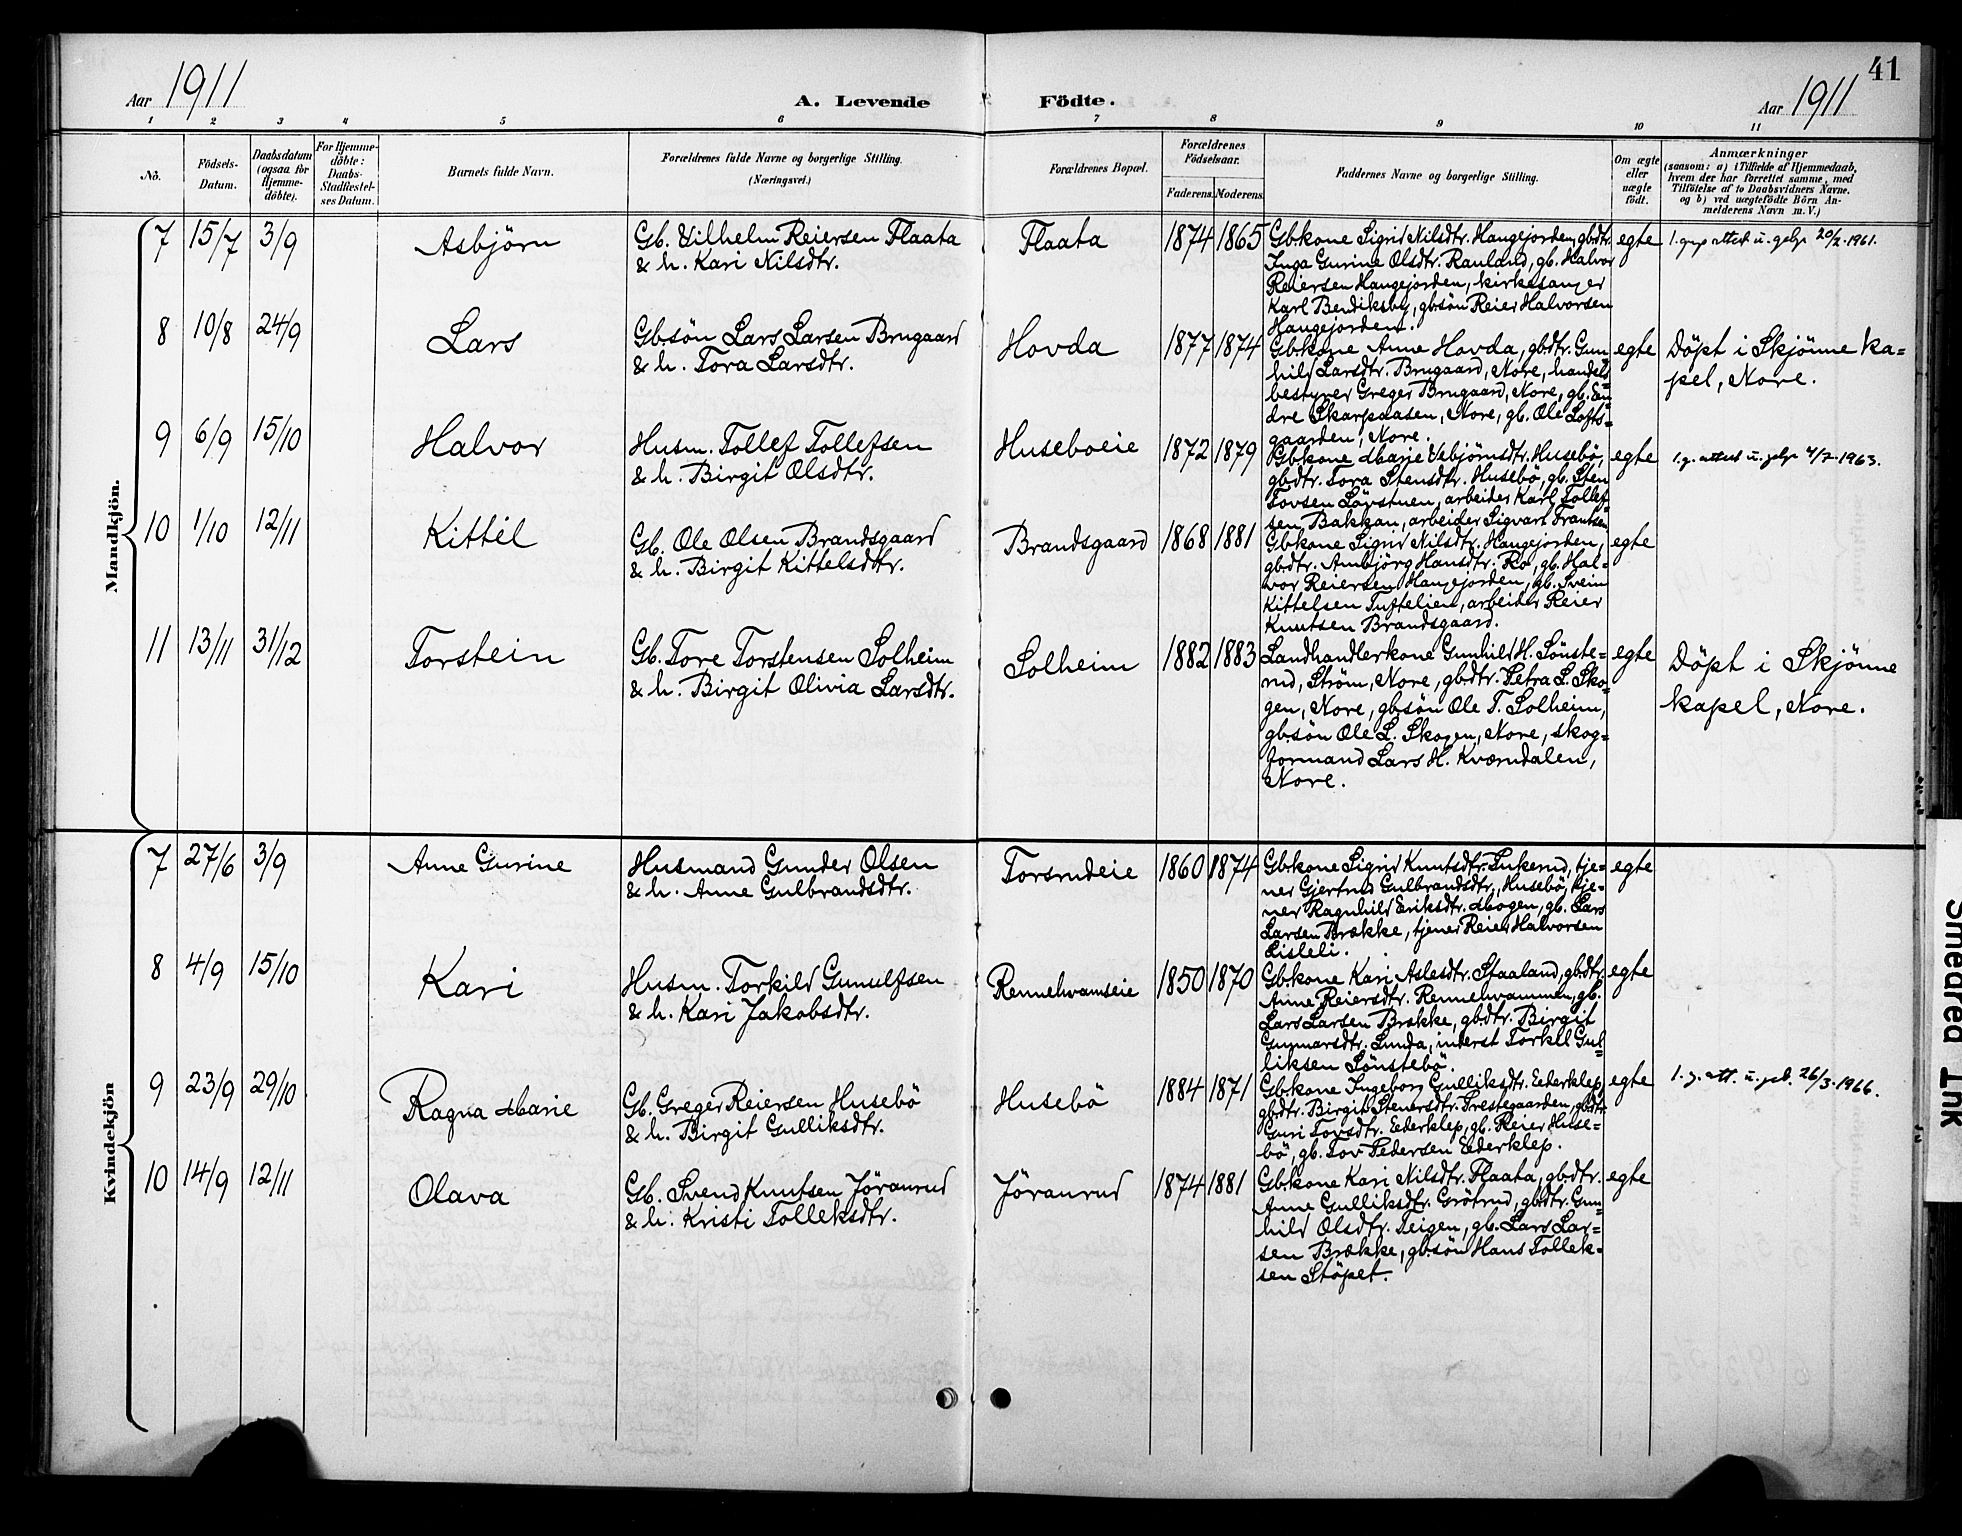 41
Aar 1911
A. Levende Födte.
Aar 1911
1 2 3 4 5 6 7 8 9 10 11
No.
Födsels-
Datum.
Daabsdatum
(ogsaa for
Hjemme-
döbte).
For Hjemme-
döbte:
Daabs-
Stadfæstel-
ses Datum.
Barnets fulde Navn.
Forældrenes fulde Navne og borgerlige Stilling.
(Næringsvei.)
Forældrenes Bopæl.
Forældrenes
Födselsaar.
Faderens.
Moderens.
Faddernes Navne og borgerlige Stilling.
Om ægte
eller
uægte
födt.
Anmærkninger
(saasom: a) i Tilfælde af Hjemmedaab,
hvem der har forrettet samme, med
Tilföielse af to Daabsvidners Navne.
og b) ved uægtefödte Börn An-
melderens Navn m. V.)
Mandkjön.
7 15/7 3/9 Asbjörn
Gb. Vilhelm Reiersen Flaata
& h. Kari Nilsdtr.
Flaata 1874 1865
Gbkone Sigrid Nilsdtr. Haugejorden, gbdtr.
Inga Gurine Olsdtr. Rauland, gb. Halvor
Reiersen Haugejorden, kirkesanger
Karl Bendiksby, gbsön Reier Halvorsen
Haugejorden.
egte
20/2-1961.
8 10/8 24/9 Lars
Gbsön Lars Larsen Brugaard
& h. Tora Larsdtr.
Hovda 1877 1874
Gbkone Anne Hovda, gbdtr. Gun=
hild Larsdtr. Brugaard, Nore, handels=
bestyrer Greger Brugaard, Nore, gb. En=
dre Skarpaasen, Nore, gb. Ole Lofts=
gaarden, Nore.
egte
Döpt i Skjönne ka=
pel, Nore.
9 6/9 15/10 Halvor
Husm. Tollef Tollefsen
& h. Birgit Olsdtr.
Huseboeie 1872 1879
Gbkone Marie Vebjörnsdtr. Husebö,
gbdtr. Tora Stensdtr. Husebö, gb. Sten
Tovsen Lövstuen, arbeider Karl Tollef=
sen Bakkan, arbeider Sigvart Frantsen
egte
4/2-1963.
10 1/10 12/11 Kittil
Gb. Ole Olsen Brandsgaard
& h. Birgit Kittelsdtr.
Brandsgaard 1868 1881
Gbkone Sigrid Nilsdtr. Haugejorden,
gbdtr. Ambjörg Hansdtr. Ro, gb. Hal=
vor Reiersen Haugejorden, gb. Svein
Kittelsen Tuftelien, arbeider Reier
Knutsen Brandsgaard.
egte
11 13/11 31/12 Torstein
Gb. Tore Torstensen Solheim
& h. Birgit Olivia Larsdtr.
Solheim 1882 1883
Landhandlerkone Gunhild H. Sönste=
rud, Ström, Nore, gbdtr. Petra L. Sko=
gen, Nore, gbsön Ole T. Solheim,
gbsön Ole L. Skogen, Nore, skog=
formand Lars H. Kværndalen,
Nore.
egte
Döpt i Skjönne
kapel, Nore.
Kvindekjön
7 27/6 3/9 Anne Gurine
Husmand Gunder Olsen
& h. Anne Gulbrandsdtr.
Torsrudeie 1860 1874
Gbkone Sigrid Knutsdtr. Lukerud, tje=
ner Gjertrud Gulbrandsdtr. Husebö, tje=
ner Ragnhild Eriksdtr. Mogen, gb. Lars
Larsen Brække, tjener Reier Halvorsen
Lisleli.
egte
8 4/9 15/10 Kari
Husm. Torkild Gunulfsen
& h. Kari Jakobsdtr.
Rennehvamseie 1850 1870
Gbkone Kari Aslesdtr. Staaland, gbdtr.
Anne Reiersdtr. Rennehvammen, gb.
Lars Larsen Brække, gbdtr. Birgit
Gunnarsdtr. Lunda, inderst Torkel Gul=
liksen Sönstebö.
egte
9 23/9 29/10 Ragna Marie
Gb. Greger Reiersen Husebö
& h. Birgit Gulliksdtr.
Husebö 1884 1871
Gbkone Ingeborg Gulliksdtr. Eederklep,
gbdtr. Birgit Stenersdtr. Prestegaarden, gbdtr.
Guri Tovsdtr. Eederklep, gb. Reier Huse=
bö, gb. Tov Pedersen Eederklep.
egte
1. g. att. u. geb. 26/3-1966.
10 14/9 12/11 Olava
Gb. Svend Knutsen Jöranrud
& h. Kristi Tolleksdtr.
Jöranrud 1874 1881
Gbkone Kari Nilsdtr. Flaata, gbdtr.
Anne Gulliksdtr. Grötrud, gbdtr. Gun=
hild Olsdtr. Teigen, gb. Lars Lar=
sen Brække, gbsön Hans Tollek=
sen Stöpet.
egte
Smeared Ink